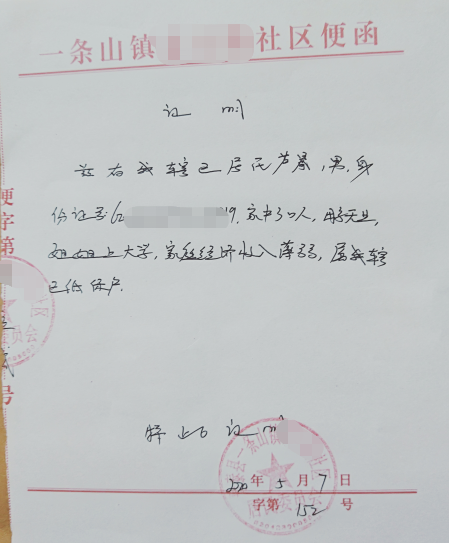 一条山镇 社区便函
证 明
兹有我辖区居民芦景,男,身
份证号62 19,家中3口人,
姐姐上大学,家庭经济收入薄弱,属我辖
区低保户.
特此证明
2020年5月7日
字第152号
便
字
第
号